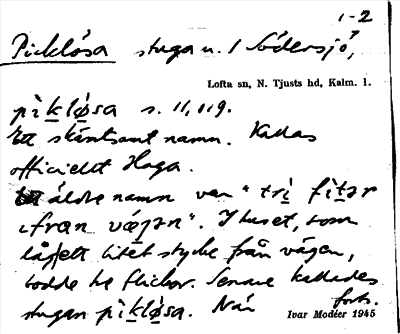 1-2
Picklösa stugan. i Södersjö,
Lofta sn, N. Tjusts hd, Kalm. l.
pìkløsa s. 11, 119.
Ett skämtsamt namn. Kallas
officiellt Haga.
äldre namn var "trì fìtər
ifrån vǽgən". I huset, som
låg ett litet stycke från vägen,
bodde tre flickor. Senare kallades
stugan pìkløsa. När
forts.
Ivar Modéer 1945